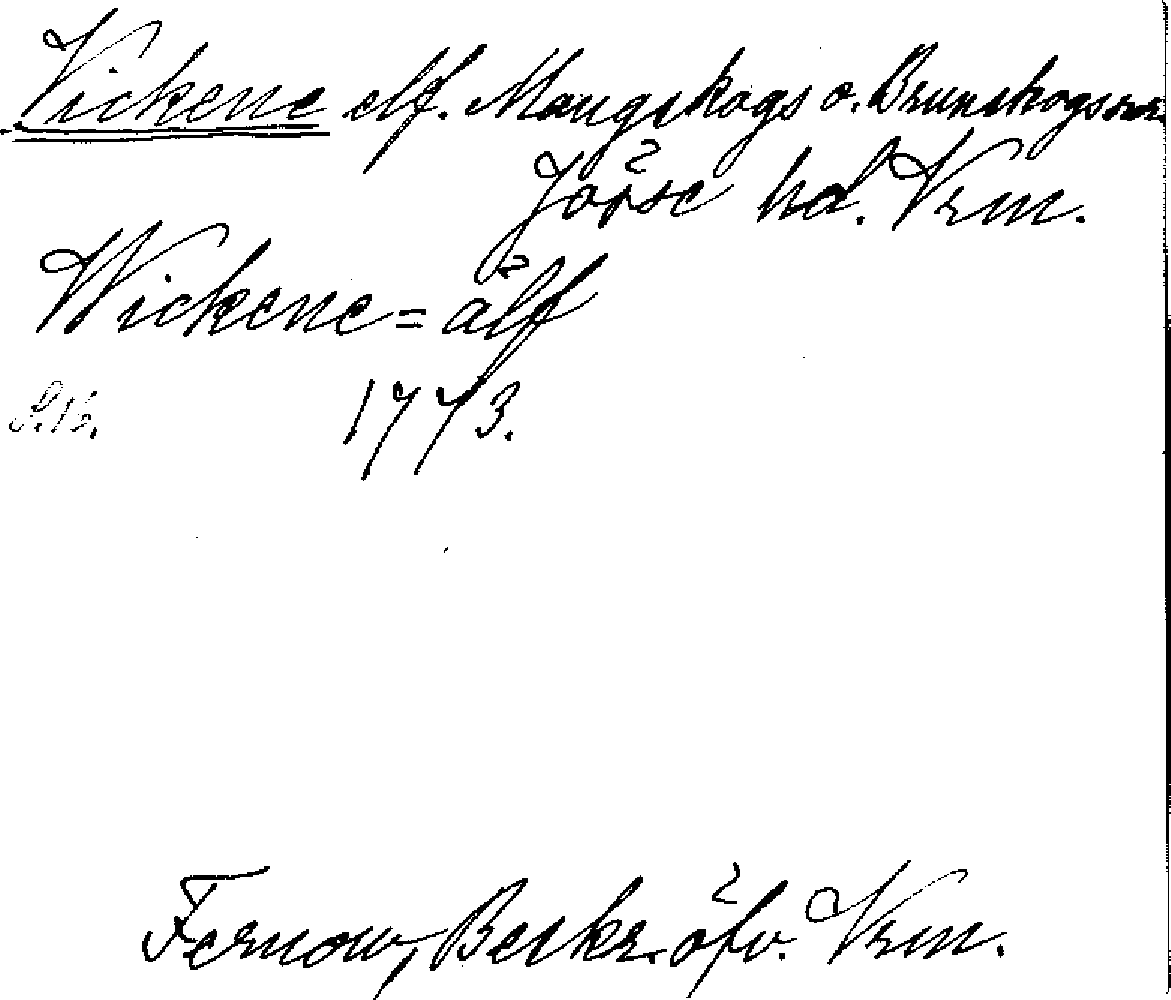 Vickene elf. Mangskogs o. Brunskogs snr.
Jösse hd. Vrm.
Wickene=älf
1773.
Fernow, Beskr. öfv. Vrm.